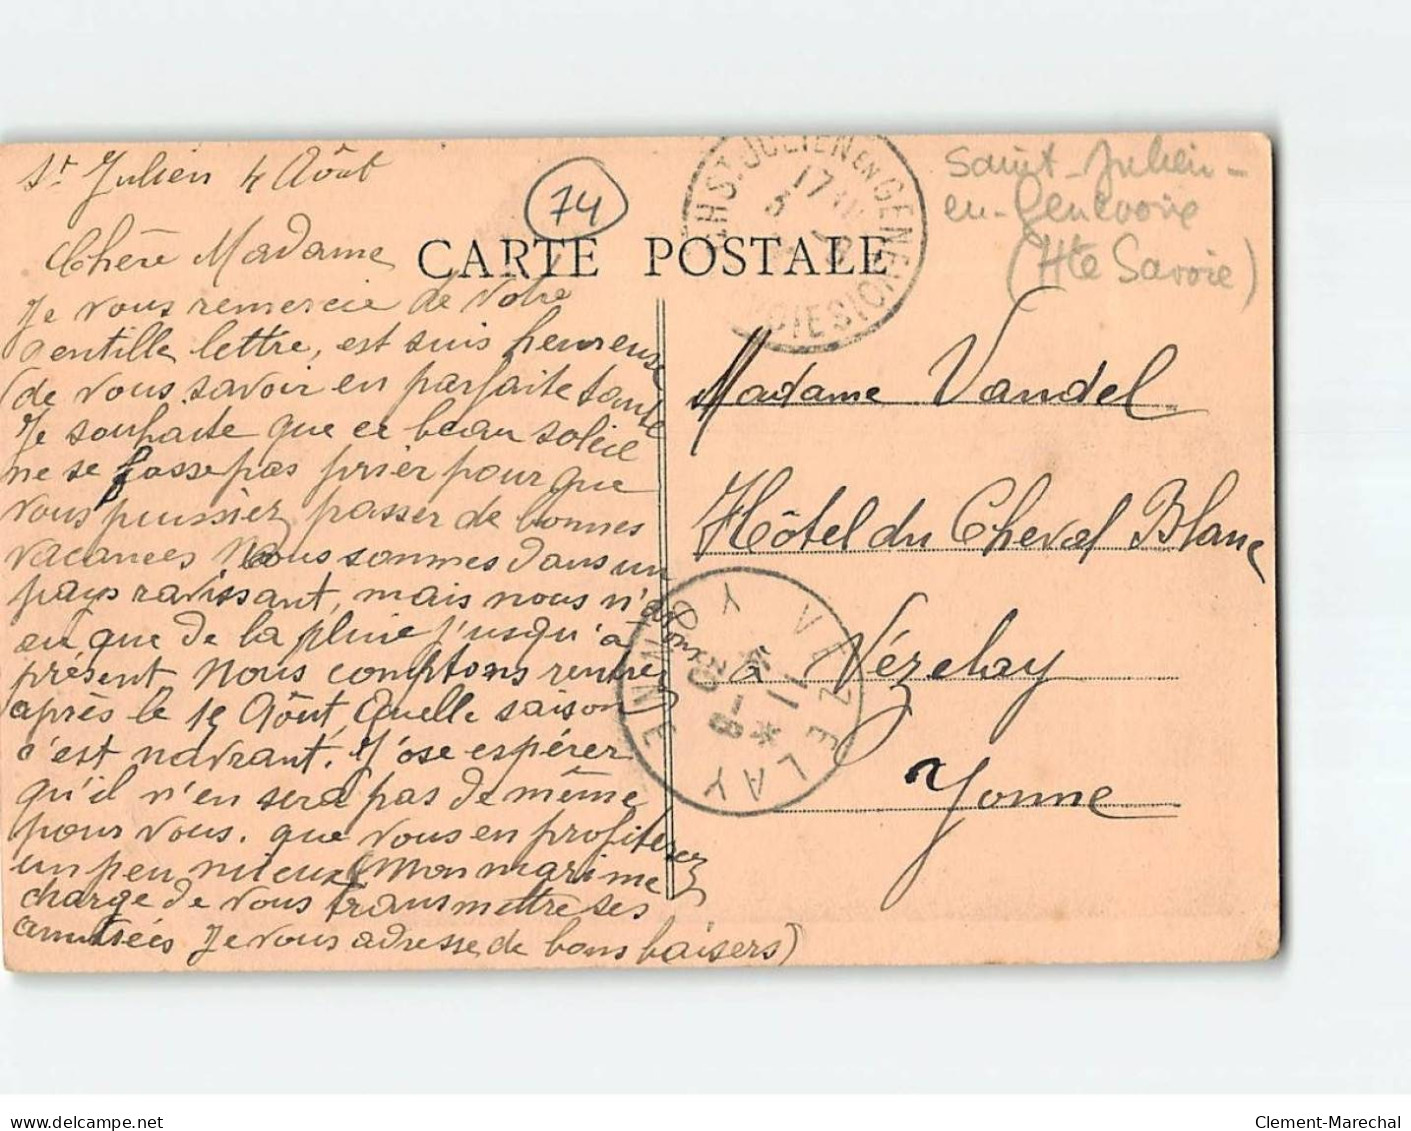 St Julien 4 Août
74
CARTE POSTALE
ST JULIEN EN GENEVOIS
17
5
Saint-Julien-
en-Genevoix
(Hte Savoie)
Chère Madame
Je vous remercie de votre
gentille lettre, est suis heureuse
de vous savoir en parfaite santé
Je souhaite que ce beau soleil
ne se fasse pas prier pour que
vous puissiez passer de bonnes
vacances Nous sommes dans un
pays ravissant, mais nous n'avons
eu que de la pluie jusqu'à
présent Nous comptons rentrer
après le 15 Août, Quelle saison
c'est navrant. J'ose espérer
qu'il n'en sera pas de même
pour vous. que vous en profiterez
un peu mieux Mon mari me
charge de vous transmettre ses
amitiées Je vous adresse de bons baisers
Madame Vandel
Hôtel du Cheval Blanc
à Vézelay
Yonne
VEZELAY
YONNE
delcampe.net
Clement-Marechal